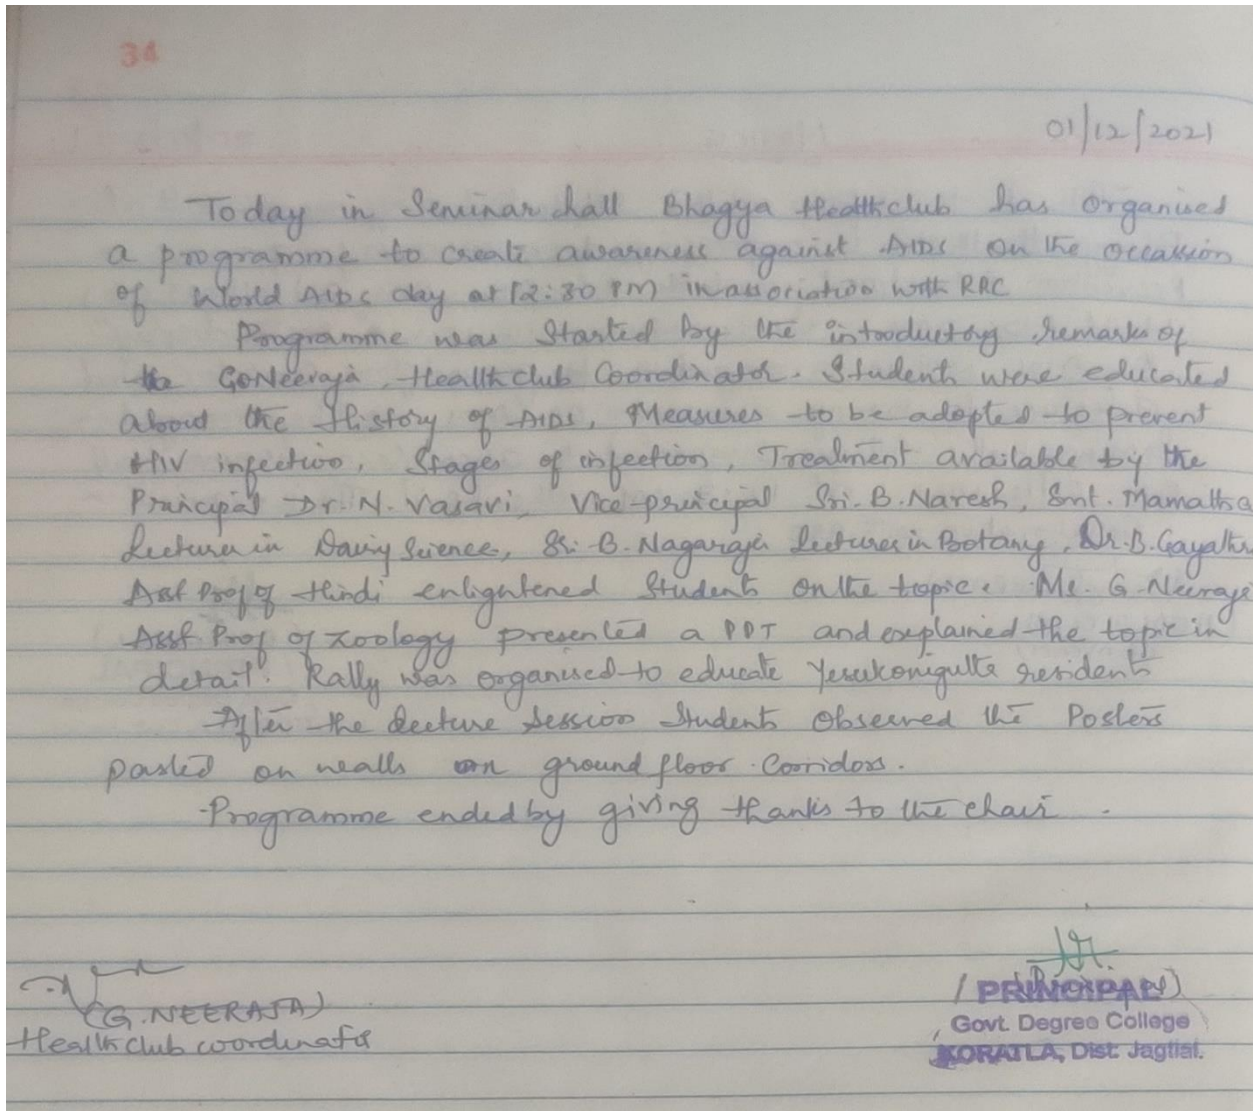 34
01/12/2021
Today in Seminar hall Bhagya Healthclub has Organised
a programme to create awareness against AIDS on the occassion
of World AIDS day at 12:30 PM in association with RRC
Programme was Started by the introductory remarks of
the G.Neeraja, Healthclub Coordinator. Students were educated
about the History of AIDS, Measures to be adopted to prevent
HIV infection, Stages of infection, Treatment available by the
Principal Dr. N. Vasavi, Vice-principal Sri. B. Naresh, Smt. Mamatha
Lecturer in Dairy Science, Sri. B. Nagaraja Lecturer in Botany, Dr. B. Gayathri
Asst Prof of Hindi enlightened Students on the topic. Ms. G. Neeraja
Asst Prof of Zoology presented a PPT and explained the topic in
detail. Rally was organised to educate Yesukonigutta residents
After the Lecture Session Students Observed the Posters
pasted on walls on ground floor Corridors.
Programme ended by giving thanks to the chair.
(G. NEERAJA)
Healthclub coordinator
(PRINCIPAL)
Govt. Degree College
KORATLA, Dist. Jagtial.